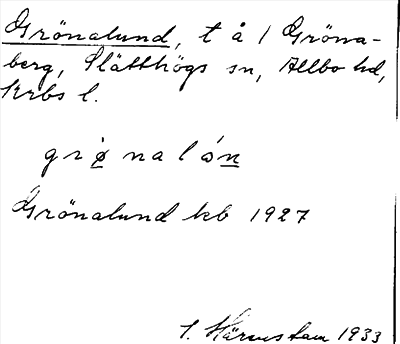 Grönalund, t å 1 Gröna-
berg, Slätthögs sn, Allbo hd,
Krbs l.
grønalón
Grönalund kb 1927
1933